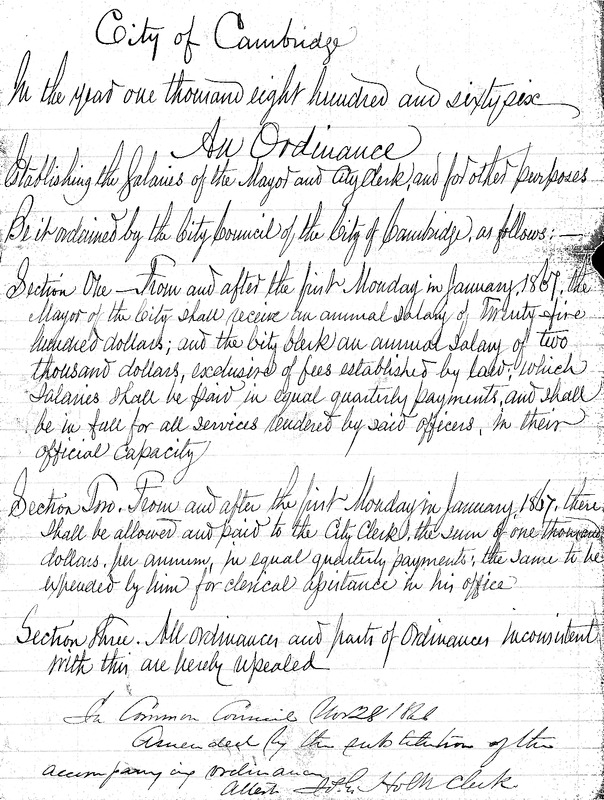 City of Cambridge
In the year one thousand eight hundred and sixty six
An Ordinance
Establishing the Salaries of the Mayor and City Clerk, and for other purposes
Be it ordained by the City Council of the City of Cambridge, as follows: —
Section One — From and after the first Monday in January, 1867, the
Mayor of the City shall receive an annual salary of Twenty five
hundred dollars; and the City Clerk an annual salary of two
thousand dollars, exclusive of fees established by law; which
salaries shall be paid in equal quarterly payments, and shall
be in full for all services rendered by said officers, in their
official capacity
Section Two. From and after the first Monday in January, 1867, there
shall be allowed and paid to the City Clerk, the sum of one thousand
dollars. per annum, in equal quarterly payments; the same to be
expended by him for clerical assistance in his office
Section Three. All ordinances and parts of Ordinances inconsistent
with this are hereby repealed
In Common Council Nov 28 1866
Amended by the substitution of the
accompanying ordinance
Attest Clerk